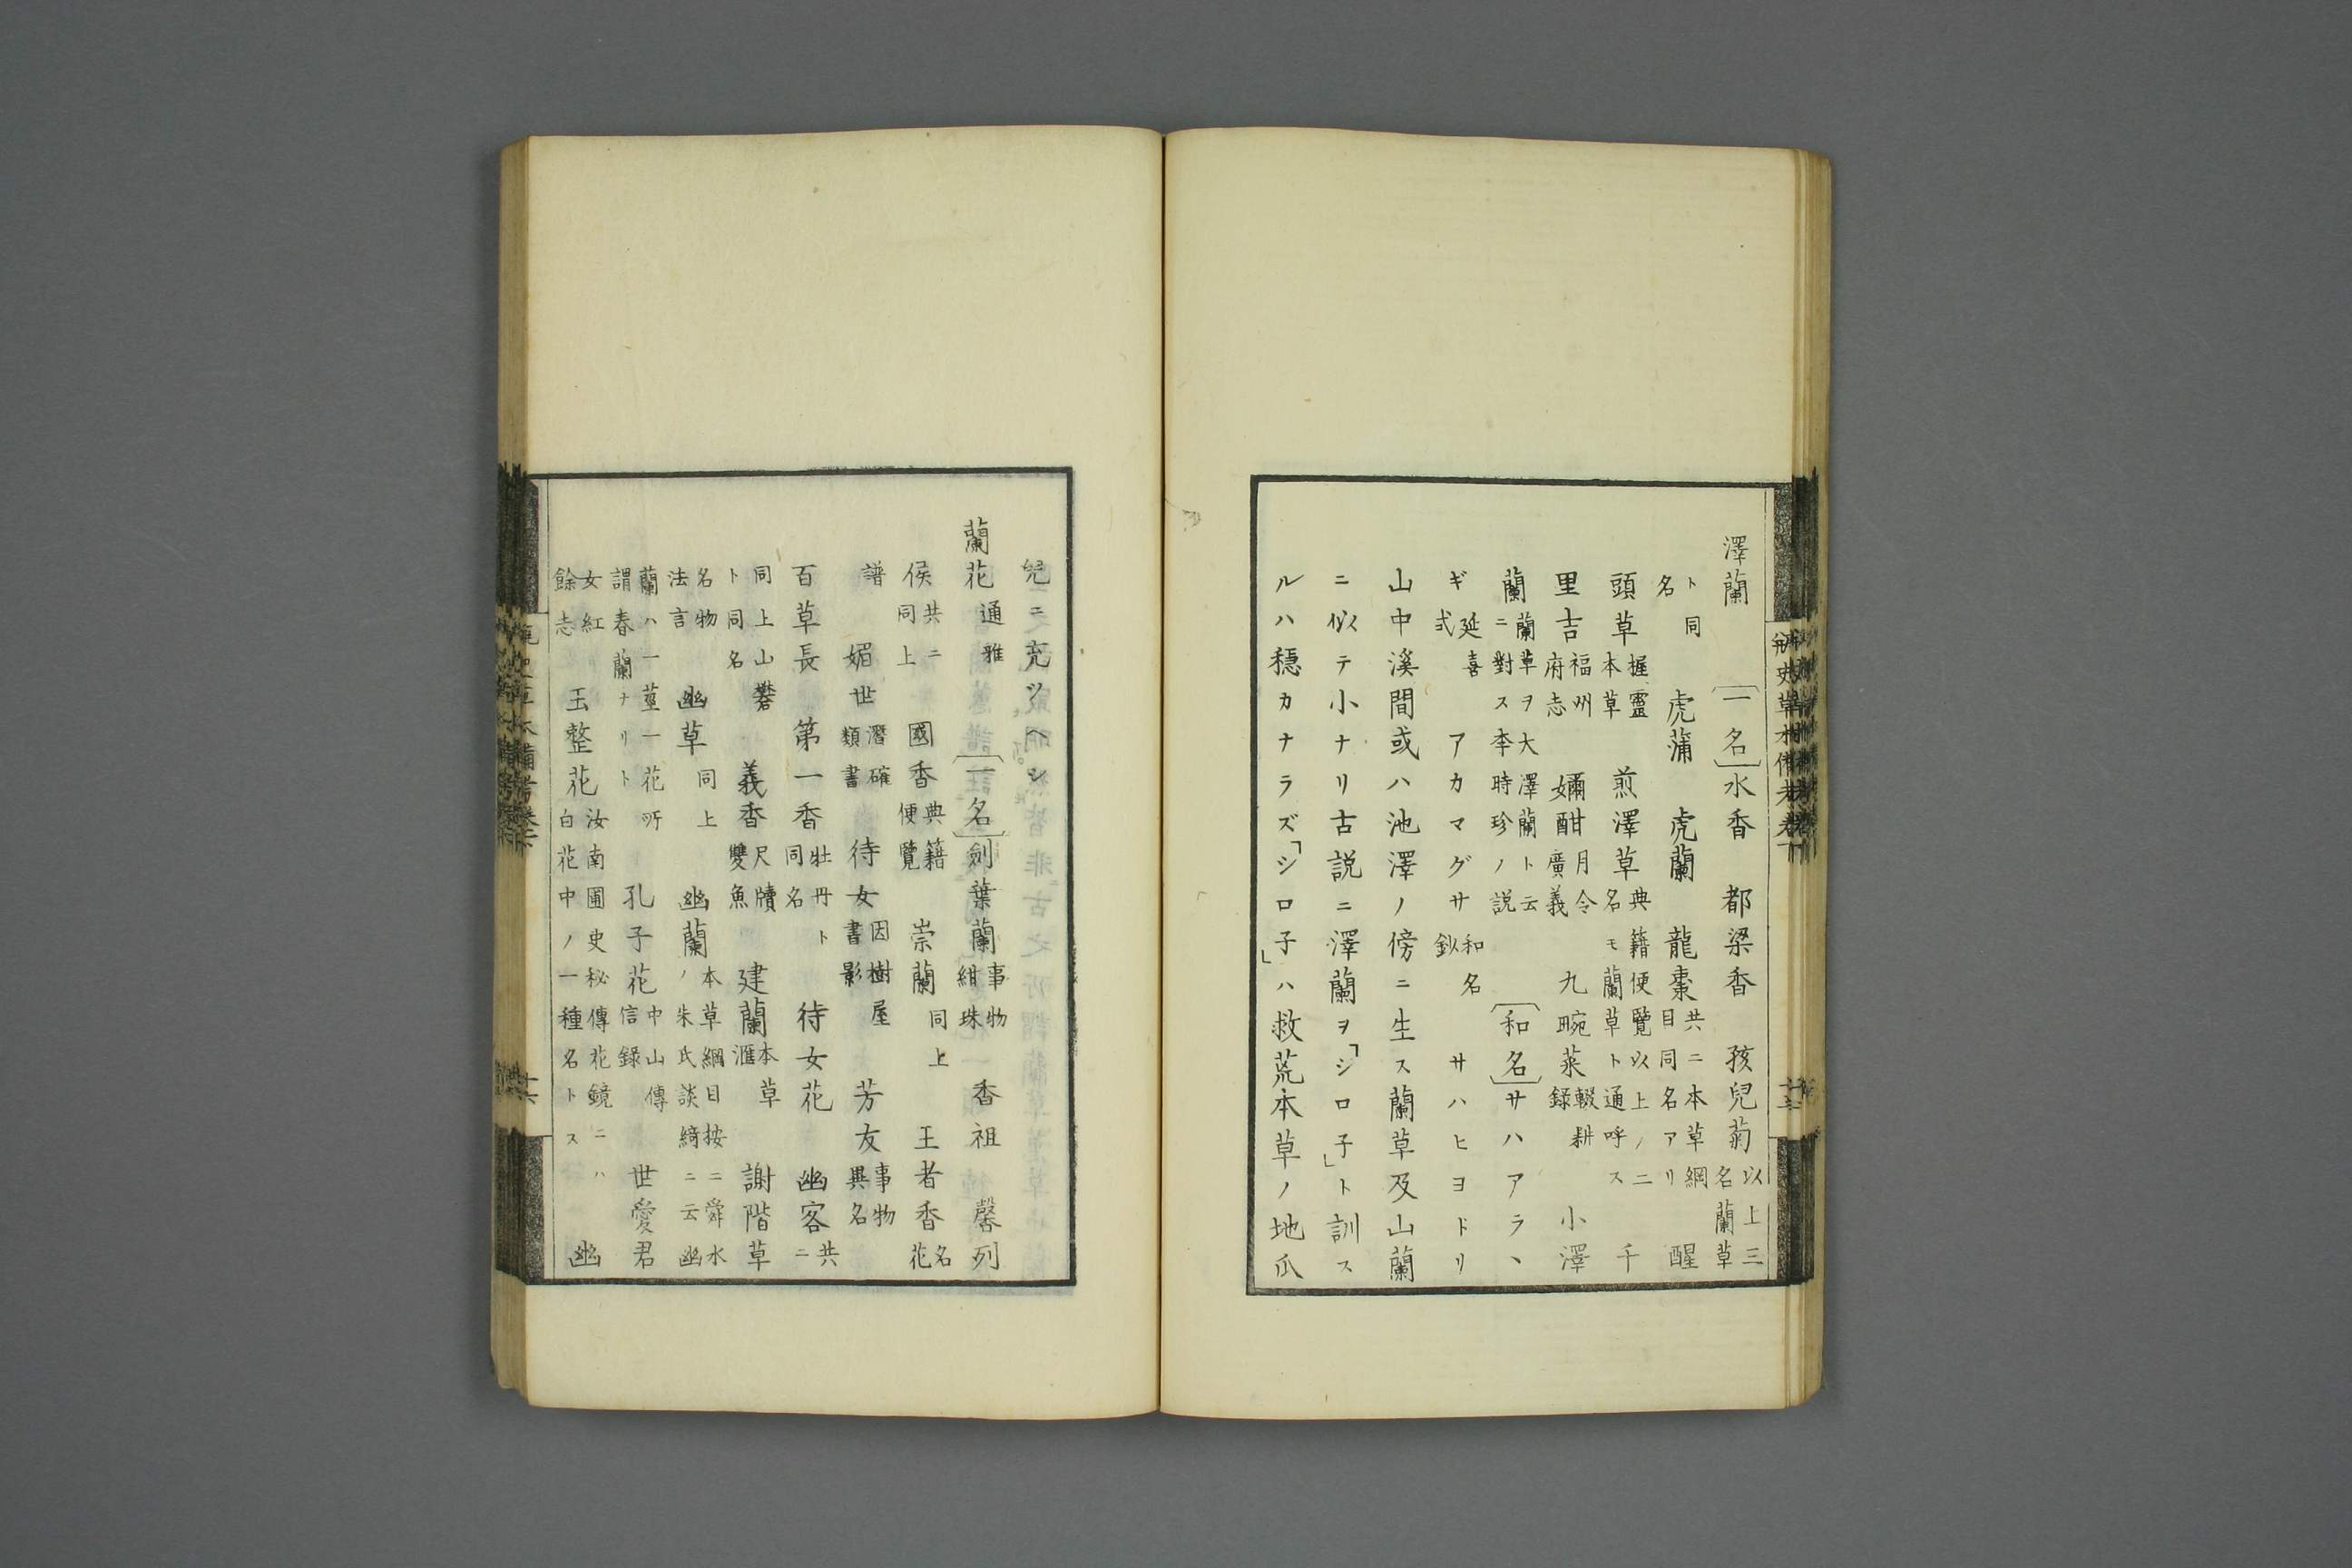 澤蘭〔一名〕水香 都梁香 孩兒菊以上三名蘭草
ト同名 虎蒲 虎蘭 龍棗共ニ本草綱目同名アリ 醒
頭草握靈本草 煎澤草典籍便覽以上ノ二名モ蘭草ト通呼ス 千
里吉福州府志 嬭酣月令廣義 九畹菜輟耕錄 小澤
蘭蘭草ヲ大澤蘭ト云ニ對ス李時珍ノ説 〔和名〕サハアラヽ
ギ延喜式 アカマグサ和名鈔 サハヒヨドリ
山中溪間或ハ池澤ノ傍ニ生ス蘭草及山蘭
ニ似テ小ナリ古説ニ澤蘭ヲ「シロ子」ト訓ス
ルハ穩カナラズ「シロ子」ハ救荒本草ノ地瓜
兒ニ充ツヘシ
蘭花通雅〔一名〕劍葉蘭事物紺珠 香祖 馨列
侯共ニ同上 國香典籍便覽 崇蘭同上 王者香名花
譜 媚世潛確類書 待女因樹屋書影 芳友事物異名
百草長 第一香牡丹ト同名 待女花 幽客共ニ
同上山礬ト同名 義香尺牘雙魚 建蘭本草滙 謝階草
名物法言 幽草同上 幽蘭本草綱目按ニ舜水ノ朱氏談綺ニ云幽
蘭ハ一莖一花所謂春蘭ナリト 孔子花中山傳信錄 世愛君
女紅餘志 玉整花汝南圃史秘傳花鏡ニハ白花中ノ一種名トス 幽